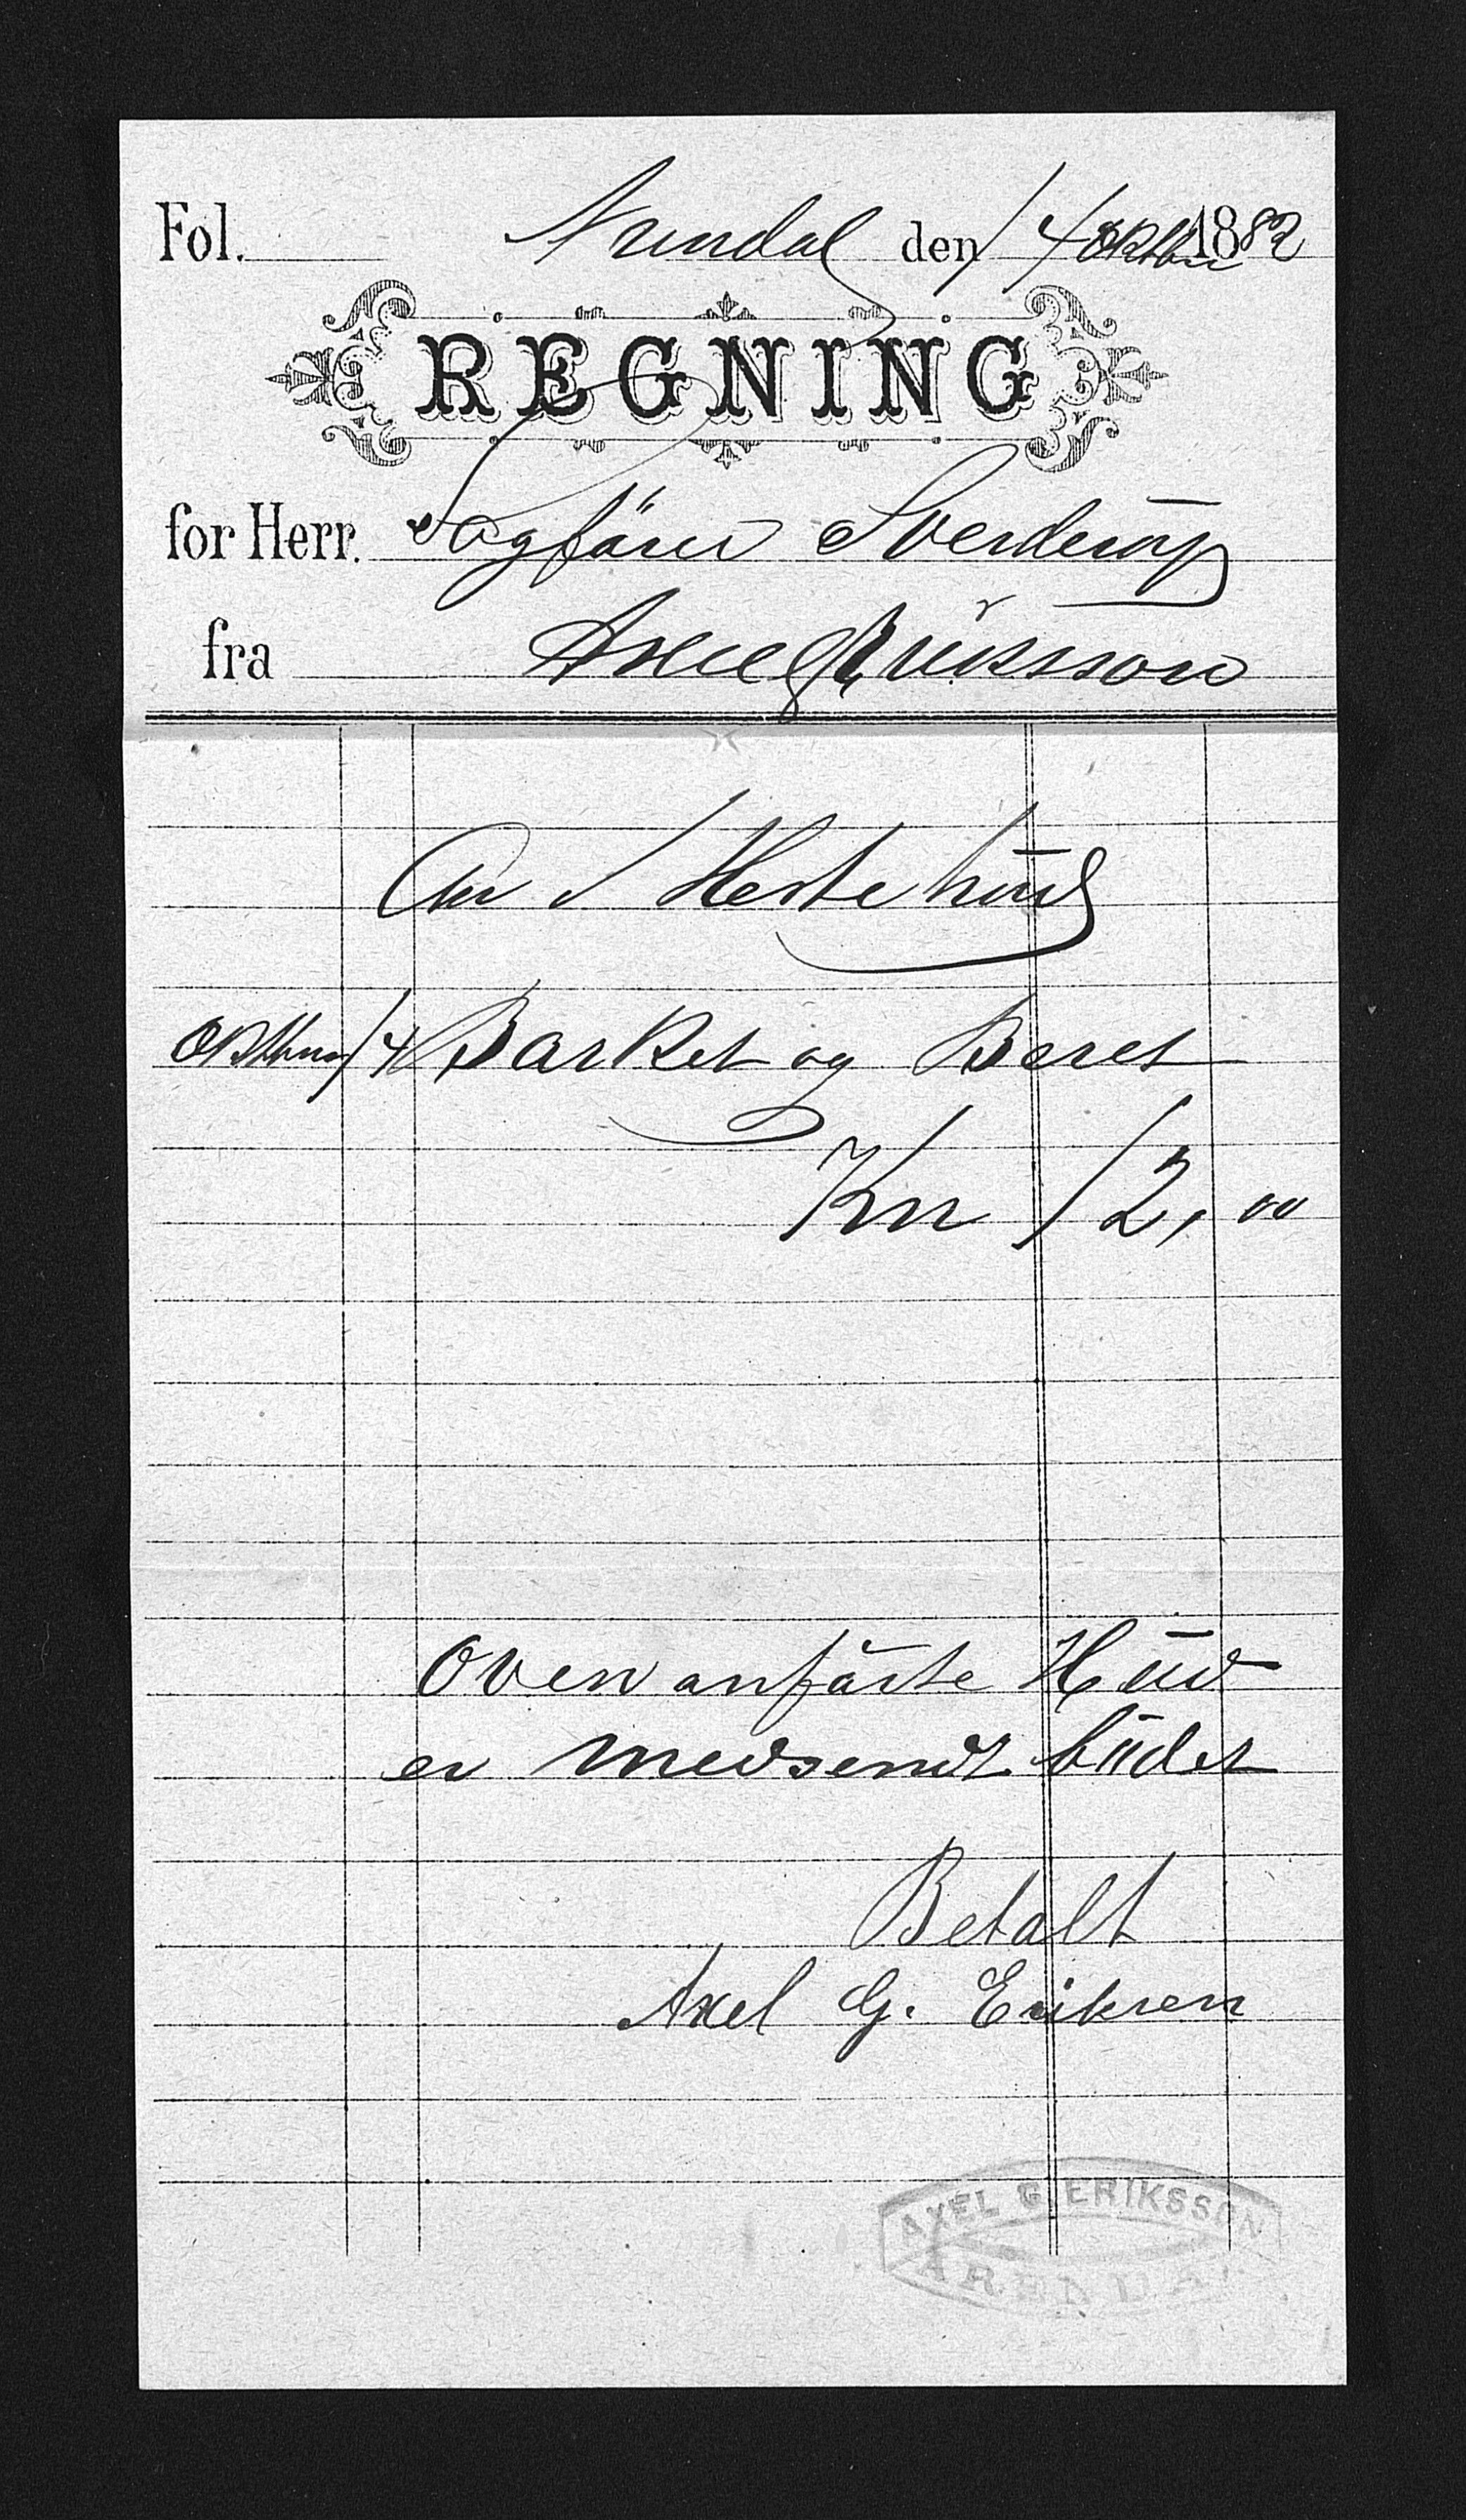 Fol. Arendal den 14 Oktber 1882
REGNING
for Herr. Sagförer Sverdrup
fra Axel G Eriksson
An 1 Hestehud
Oktber 14 Barket og Beret
Kr 12,00
Ovenanförte Hud
er medsendt budet
Betalt
Axel G. Eriksen
AXEL G. ERIKSSON
ARENDAL